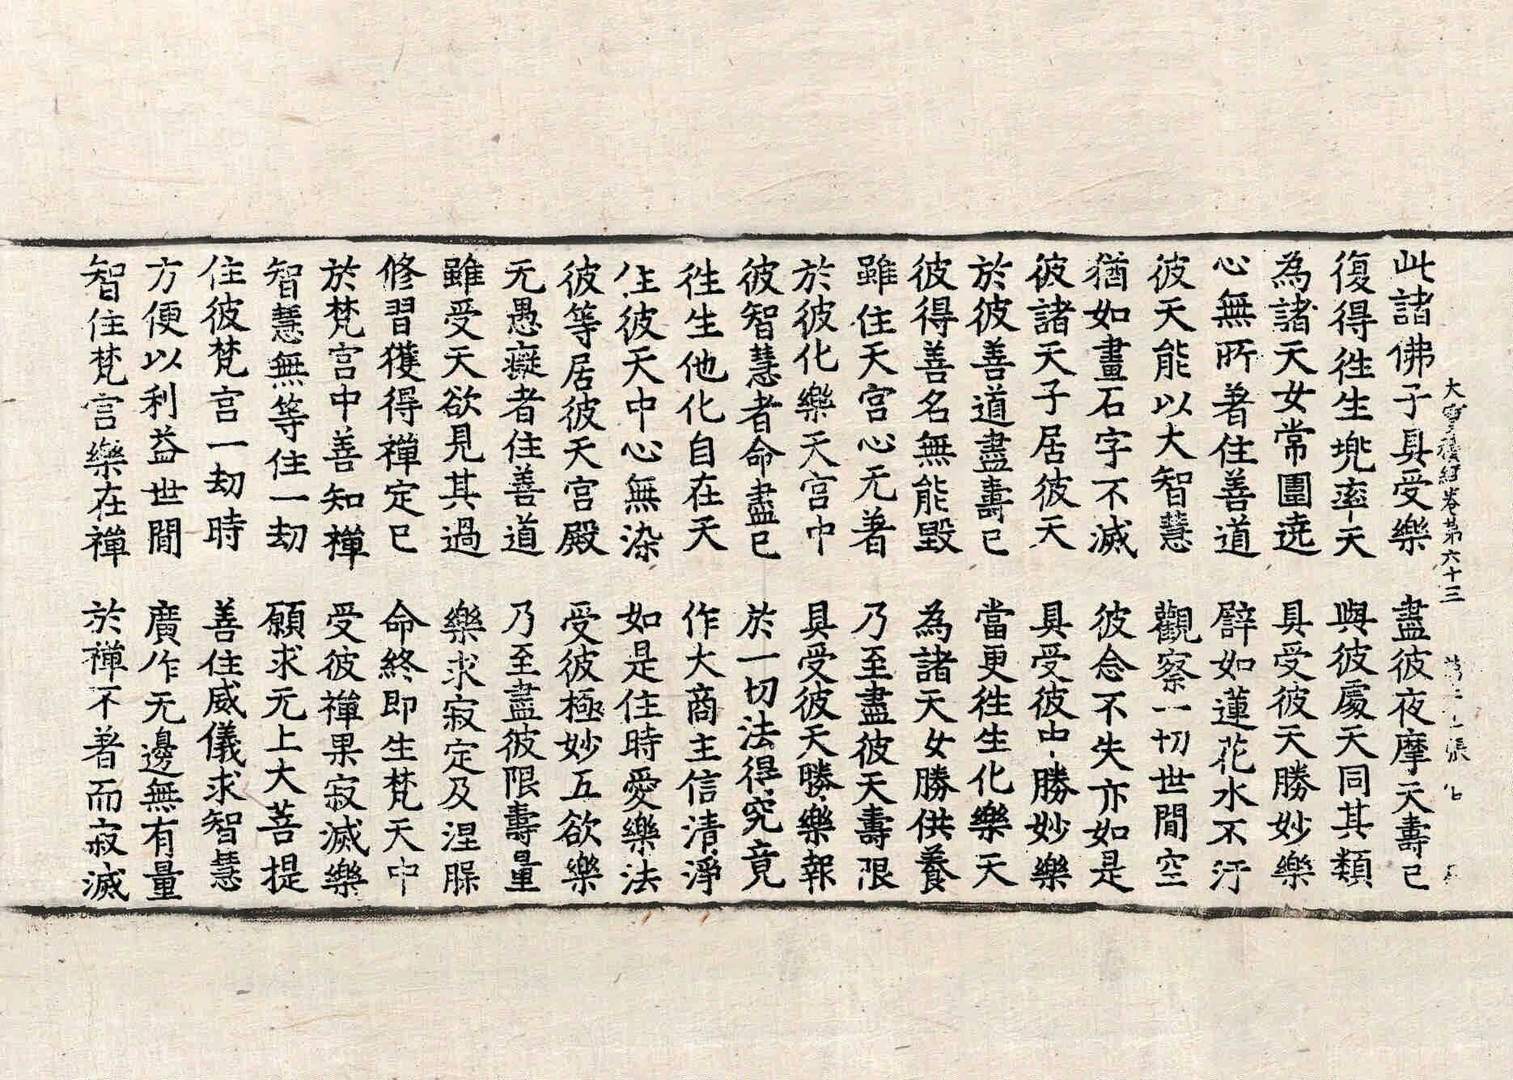 大寶積經卷第六十三 第二十張
此諸佛子具受樂 盡彼夜摩天壽已
復得徃生兠率天 與彼處天同其類
為諸天女常圍遶 具受彼天勝妙樂
心無所著住善道 譬如蓮花水不汙
彼天能以大智慧 觀察一切世間空
猶如畫石字不滅 彼念不失亦如是
彼諸天子居彼天 具受彼中勝妙樂
於彼善道盡壽已 當更徃生化樂天
彼得善名無能毀 為諸天女勝供養
雖住天宮心无著 乃至盡彼天壽限
於彼化樂天宮中 具受彼天勝樂報
彼智慧者命盡已 於一切法得究竟
徃生他化自在天 作大商主信清淨
住彼天中心無染 如是住時愛樂法
彼等居彼天宮殿 受彼極妙五欲樂
无愚癡者住善道 乃至盡彼限壽量
雖受天欲見其過 樂求寂定及涅槃
修習獲得禪定已 命終即生梵天中
於梵宮中善知禪 受彼禪果寂滅樂
智慧無等住一劫 願求无上大菩提
住彼梵宮一劫時 善住威儀求智慧
方便以利益世間 廣作无邊無有量
智住梵宮樂在禪 於禪不著而寂滅